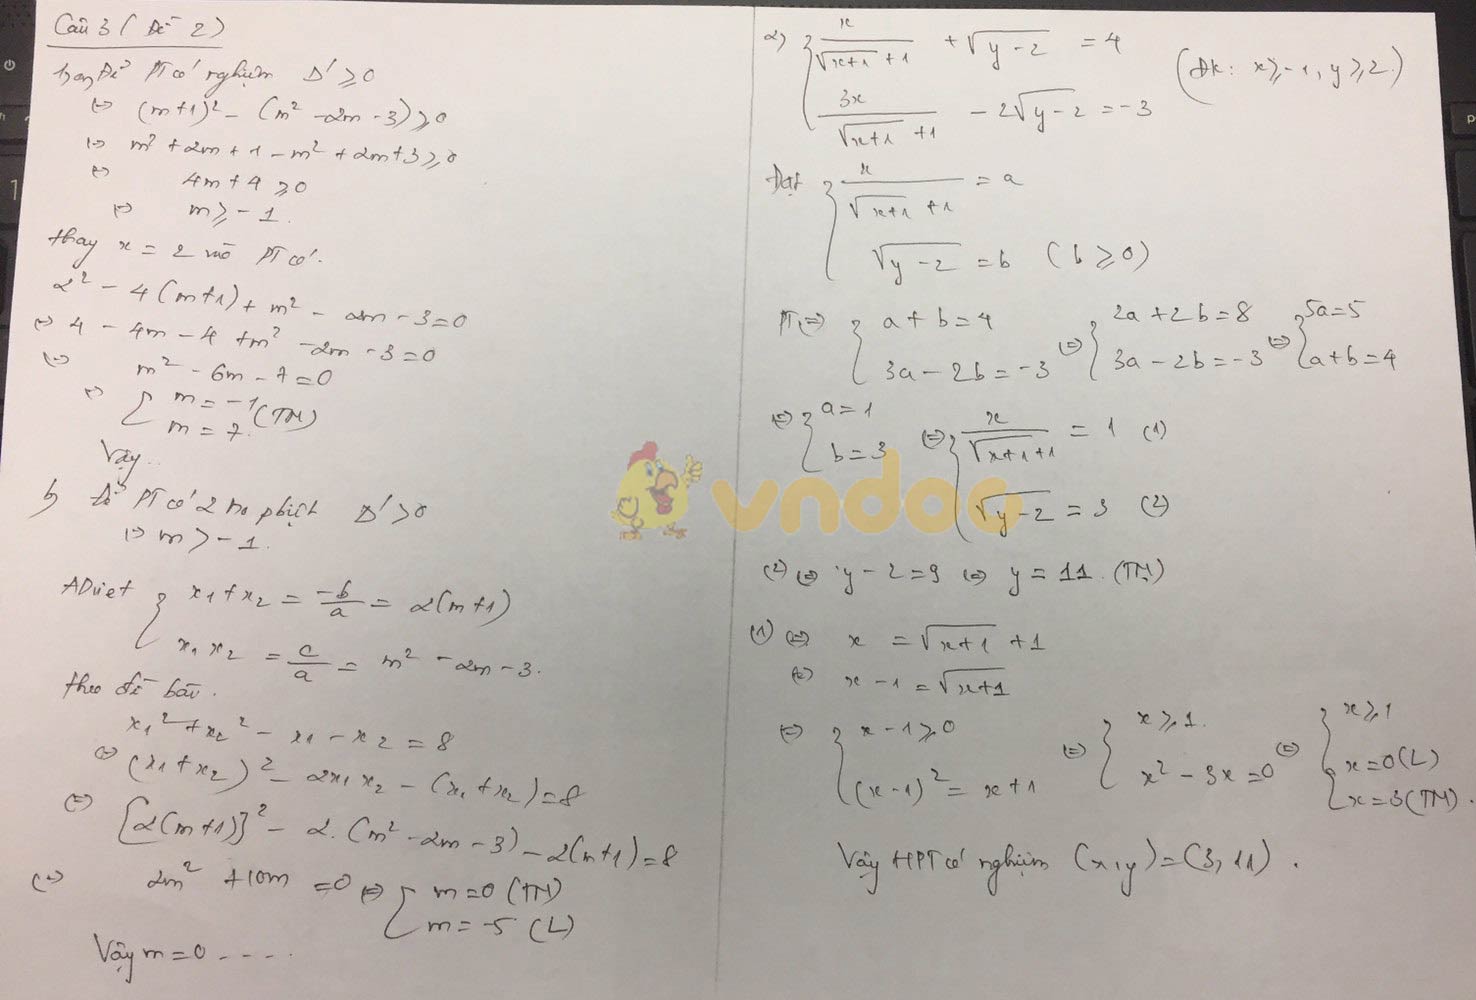 Câu 3 ( Đề 2)
Để PT có nghiệm Δ' ≥ 0
⇔ (m+1)² - (m² - 2m - 3) ≥ 0
⇔ m² + 2m + 1 - m² + 2m + 3 ≥ 0
⇔ 4m + 4 ≥ 0
⇔ m ≥ -1.
Thay x = 2 vào PT có.
2² - 4(m+1) + m² - 2m - 3 = 0
⇔ 4 - 4m - 4 + m² - 2m - 3 = 0
⇔ m² - 6m - 7 = 0
⇔ [ m = -1 (TM)
m = 7.
Vậy..
b, Để PT có 2 no pbiệt Δ' > 0
⇔ m > -1.
AD viet { x₁ + x₂ = -b/a = 2(m+1)
x₁ x₂ = c/a = m² - 2m - 3.
theo đề bài.
x₁² + x₂² - x₁ - x₂ = 8
⇔ (x₁ + x₂)² - 2x₁x₂ - (x₁ + x₂) = 8
⇔ [2(m+1)]² - 2.(m² - 2m - 3) - 2(m+1) = 8
⇔ 2m² + 10m = 0 ⇔ [ m = 0 (TM)
m = -5 (L)
Vậy m = 0 - - - -.
2) { x/(√(x+1) + 1) + √(y-2) = 4
3x/(√(x+1) + 1) - 2√(y-2) = -3
(ĐK: x ≥ -1, y ≥ 2.)
Đặt { x/(√(x+1) + 1) = a
√(y-2) = b (b ≥ 0)
PT ⇔ { a + b = 4 ⇔ { 2a + 2b = 8 ⇔ { 5a = 5
3a - 2b = -3 3a - 2b = -3 a + b = 4
⇔ { a = 1 ⇔ { x/(√(x+1) + 1) = 1 (1)
b = 3 √(y-2) = 3 (2)
vndoc
(2) ⇔ y - 2 = 9 ⇔ y = 11. (TM)
(1) ⇔ x = √(x+1) + 1
⇔ x - 1 = √(x+1)
⇔ { x - 1 ≥ 0 ⇔ { x ≥ 1. ⇔ { x ≥ 1
(x-1)² = x + 1 x² - 3x = 0 [ x = 0 (L)
x = 3 (TM).
Vậy HPT có nghiệm (x,y) = (3, 11).